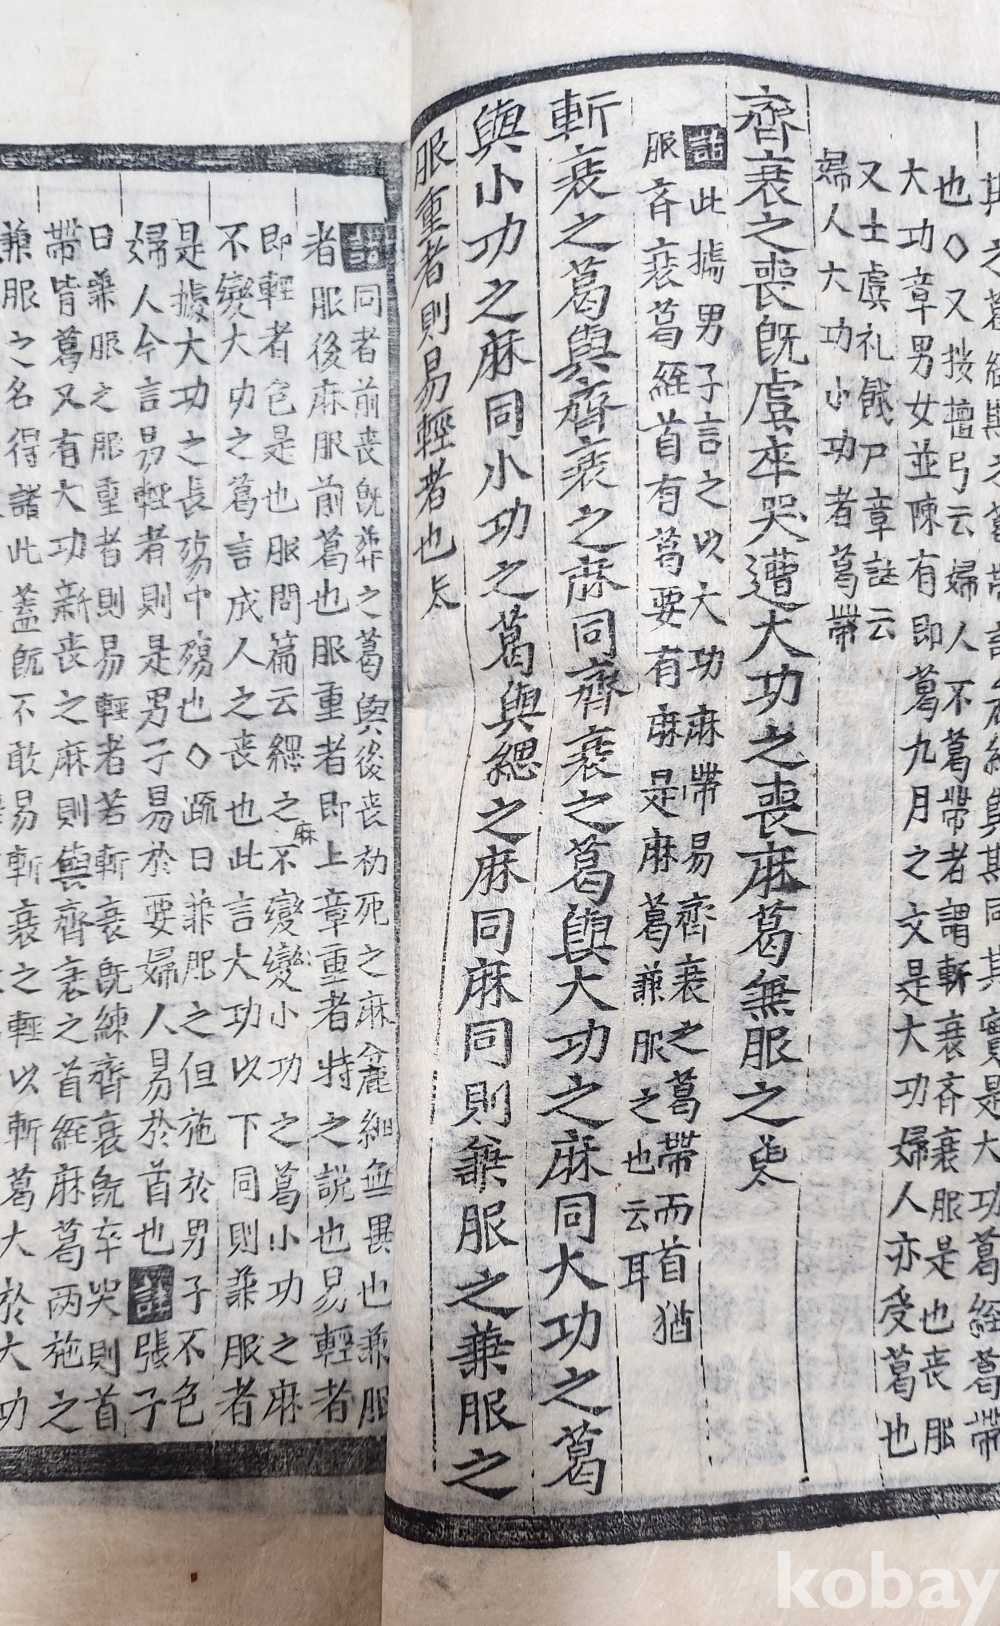 同其實是大功葛絰葛帶
也○又按檀弓云婦人不葛帶者謂斬衰斉衰服是也喪服
大功章男女並陳有即葛九月之文是大功婦人亦受葛也
又士虞礼餞尸章註云
婦人大功小功者葛帶
齊衰之喪旣虞卒哭遭大功之喪麻葛無服之
註此據男子言之以大功麻帶易齊衰之葛帶而首猶
服斉衰葛絰首有葛要有麻是麻葛兼服之也云耳
斬衰之葛與齊衰之麻同齊衰之葛與大功之麻同大功之葛
與小功之麻同小功之葛與緦之麻同麻同則兼服之兼服之
服重者則易輕者也
註同者前喪旣葬之葛與後喪初死之麻麄細無異也兼服
者服後麻服前葛也服重者即上章重者特之說也易輕者
即輕者包是也服問篇云緦之麻不變變小功之葛小功之麻
不變大功之葛言成人之喪也此言大功以下同則兼服者
是據大功之長殤中殤也○疏曰兼服之但施於男子不包
婦人今言易輕者則是男子易於要婦人易於首也註張子
曰兼服之服重者則易輕者若斬衰旣練齊衰旣卒哭則首
帶皆葛又有大功新喪之麻則與齊衰之首絰麻葛兩施之
兼服之名得諸此蓋旣不敢易斬衰之輕以斬葛大於大功
kobay